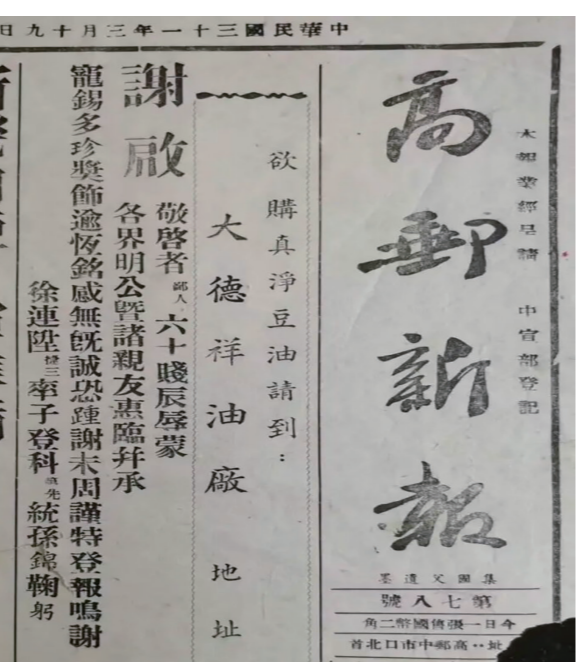 中華民國三十一年三月十九日
高郵新報
本報業經呈請 中宣部登記
集國父遺墨
第七八號
今日一張售國幣二角
址：高郵中市口北首
欲購真淨豆油請到：
大德祥油廠 地址
謝啟
敬啓者鄙人六十賤辰辱蒙
各界明公曁諸親友惠臨幷承
寵錫多珍獎飾逾恆銘感無旣誠恐踵謝未周謹特登報鳴謝
徐連陞 率子登科 統孫錦 鞠躬